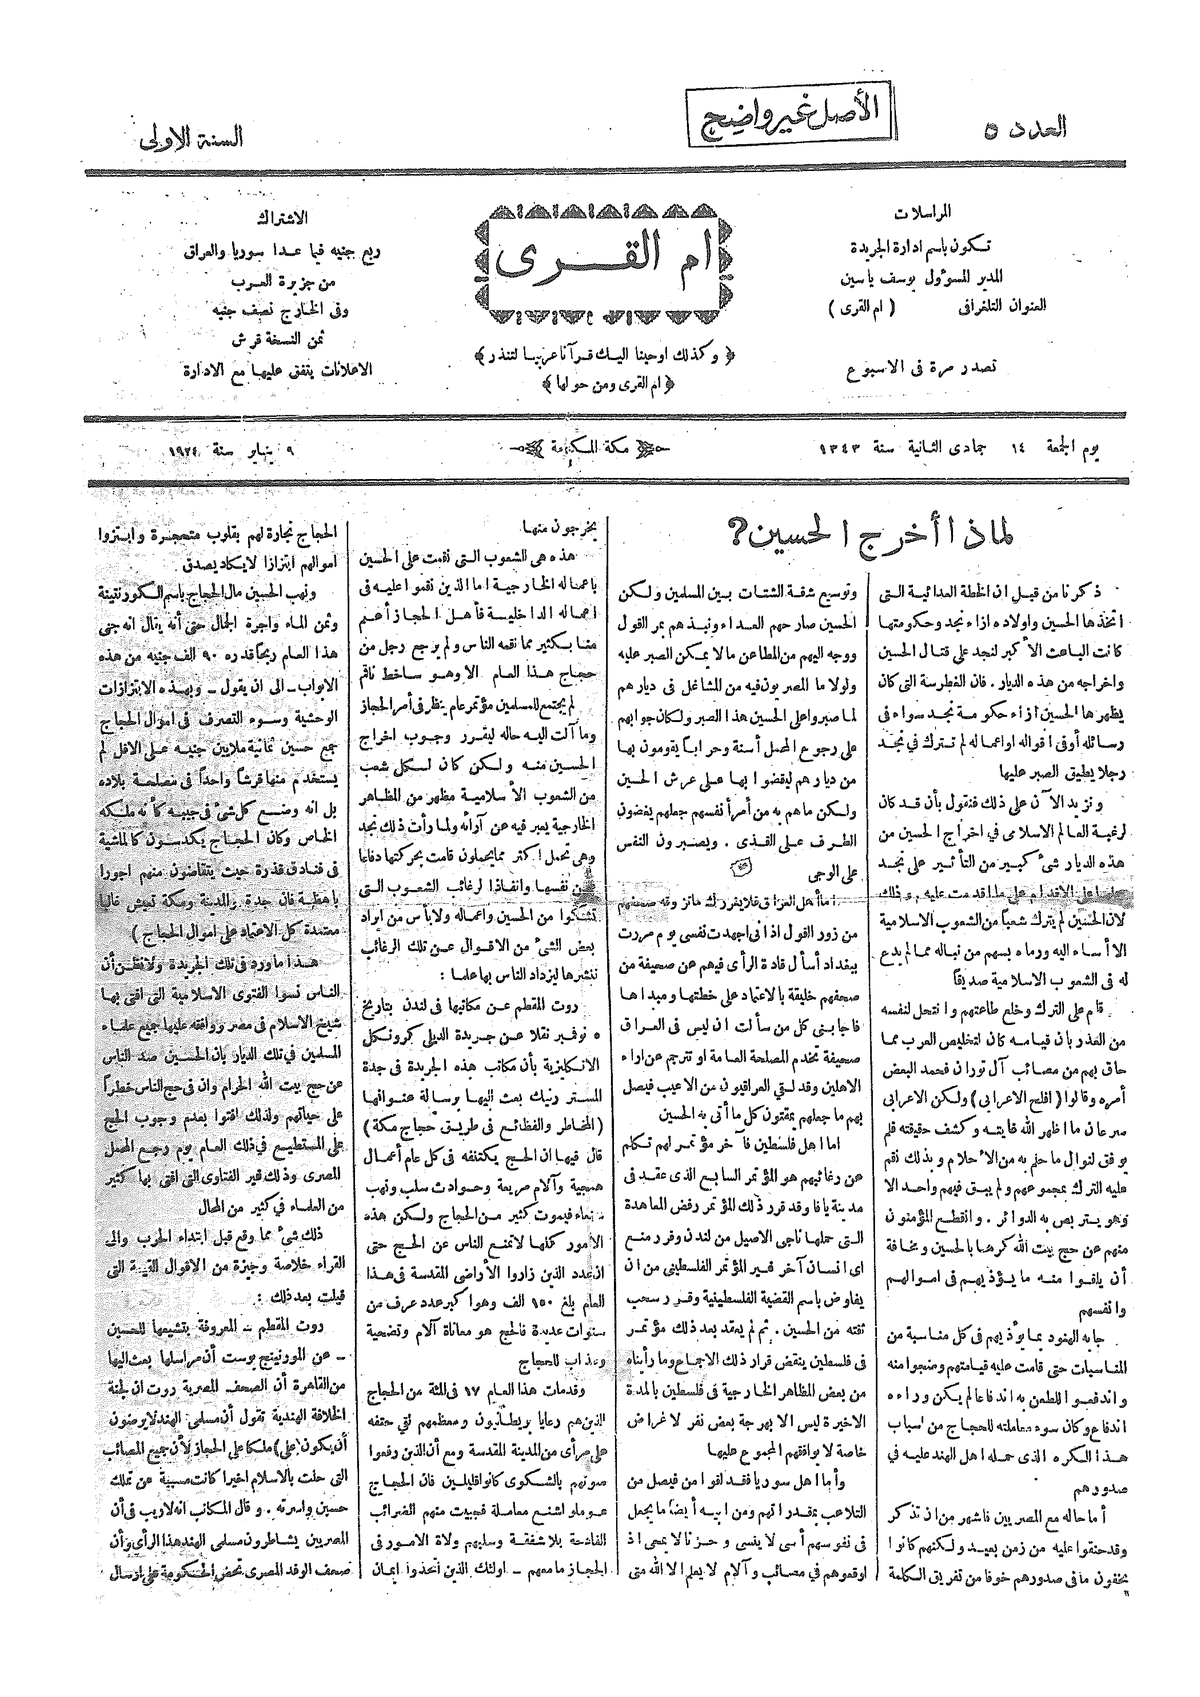 العدد ٥
الأصل غير واضح
السنة الاولى
المراسلات
تكون باسم ادارة الجريدة
المدير المسؤول يوسف ياسين
العنوان التلغرافى ( ام القرى )
تصدر مرة فى الاسبوع
ام القرى
﴿ وكذلك اوحينا اليك قرآنا عربيا لتنذر ﴾
﴿ ام القرى ومن حولها ﴾
الاشتراك
ربع جنيه فيما عدا سوريا والعراق
من جزيرة العرب
وفى الخارج نصف جنيه
ثمن النسخة قرش
الاعلانات يتفق عليها مع الادارة
يوم الجمعة ١٤ جمادى الثانية سنة ١٣٤٣
مكة المكرمة
٩ يناير سنة ١٩٢٤
لماذا أخرج الحسين ?
ذكرنا من قبل ان الخطة العدائية التى
اتخذها الحسين واولاده ازاء نجد وحكومتها
كانت الباعث الأكبر لنجد على قتال الحسين
واخراجه من هذه الديار . فان الغطرسة التى كان
يظهرها الحسين ازاء حكومة نجد سواء فى
رسائله أوفى اقواله اواعماله لم تترك في نجد
رجلا يطيق الصبر عليها
ونزيد الآن على ذلك فنقول بأن قد كان
لرغبة العالم الاسلامى في اخراج الحسين من
هذه الديار شئ كبير من التأثير على نجد
على الاقدام على ما اقدمت عليه . وذلك
لان الحسين لم يترك شعباً من الشعوب الاسلامية
الا أساء اليه ورماه بسهم من نباله مما لم يدع
له فى الشعوب الاسلامية صديقاً
قام على الترك وخلع طاعتهم وانتحل لنفسه
من العذر بان قيامه كان لتخليص العرب مما
حاق بهم من مصائب آل توران فحمد البعض
أمره وقالوا ( افلح الاعرابى ) ولكن الاعرابى
سرعان ما اظهر الله غايته وكشف حقيقته فلم
يوفق لنوال ما حلم به من الأحلام وبذلك نقم
عليه الترك بمجموعهم ولم يبق فيهم واحد الا
وهو يتربص به الدوائر . وانقطع المؤمنون
منهم عن حج بيت الله كرها بالحسين ومخافة
أن يلقوا منه ما يؤذيهم فى اموالهم
وانفسهم
جابه الهنود بما يؤذيهم فى كل مناسبة من
المناسبات حتى قامت عليه قيامتهم وضجوا منه
واندفعوا للطعن به اندفاعا لم يكن وراءه
اندفاع وكان سوء معاملته للحجاج من اسباب
هذا الكره الذى حمله اهل الهند عليه في
صدورهم
أما حاله مع المصريين فاشهر من ان تذكر
وقد حنقوا عليه من زمن بعيد ولكنهم كانوا
يخفون ما فى صدورهم خوفا من تفريق الكلمة
وتوسيع شقة الشتات بين المسلمين ولكن
الحسين صارحهم العداء ونبذهم بمر القول
ووجه اليهم من المطاعن ما لا يمكن الصبر عليه
ولولا ما المصريون فيه من المشاغل فى ديارهم
لما صبروا على الحسين هذا الصبر ولكان جوابهم
على رجوع المحمل أسنة وحراباً يقومون بها
من ديارهم ليقضوا بها على عرش الحسين
ولكن ما هم به من أمر أنفسهم جعلهم يغضون
الطرف على القذى . ويصبرون النفس
على الوجى
اما أهل العراق فلا يغررك ماتزوقه صحيفهم
من زور القول اذ انى اجهدت نفسى يوم مررت
ببغداد أسأل قادة الرأى فيهم عن صحيفة من
صحفهم خليقة بالاعتماد على خطتها ومبداها
فاجابنى كل من سألت ان ليس فى العراق
صحيفة تخدم المصلحة العامة او تترجم عن اراء
الاهلين وقد لقى العراقيون من الاعيب فيصل
بهم ما جعلهم يمقتون كل ما أتى به الحسين
اما اهل فلسطين فآخر مؤتمر لهم تكلم
عن رغائبهم هو المؤتمر السابع الذى عقد فى
مدينة يافا وقد قرر ذلك المؤتمر رفض المعاهدة
التى حملها ناجى الاصيل من لندن وقرر منع
اى انسان آخر غير المؤتمر الفلسطينى من ان
يفاوض باسم القضية الفلسطينية وقرر سحب
ثقته من الحسين . ثم لم يعقد بعد ذلك مؤتمر
فى فلسطين ينقض قرار ذلك الاجماع وما رأيناه
من بعض المظاهر الخارجية فى فلسطين بالمدة
الاخيرة ليس الا بهرجة بعض نفر لاغراض
خاصة لا يوافقهم المجموع عليها
وأما اهل سوريا فقد لقوا من فيصل من
التلاعب بمقدراتهم ومن ابيه أيضاً ما يجعل
فى نفوسهم أسى لا ينسى وحزنا لا يمحى اذ
اوقعوهم في مصائب وآلام لا يعلم الا الله متى
يخرجون منها
هذه هى الشعوب التى نقمت على الحسين
باعماله الخارجية اما الذين نقموا عليه فى
اعماله الداخلية فأهل الحجاز أعم
منا بكثير مما نقمه الناس ولم يرجع رجل من
حجاج هذا العام الا وهو ساخط ناقم
لم يجتمع للمسلمين مؤتمر عام ينظر فى أمر الحجاز
وما آلت اليه حاله ليقرر وجوب اخراج
الحسين منه ولكن كان لكل شعب
من الشعوب الأسلامية مظهر من المظاهر
الخارجية يعبر فيه عن آرائه ولما رأت ذلك نجد
وهى تحمل اكثر مما يحملون قامت بحركتها دفاعا
عن نفسها وانفاذا لرغائب الشعوب التى
تشكوا من الحسين واعماله ولابأس من ايراد
بعض الشئ من الاقوال عن تلك الرغائب
ننشرها ليزداد الناس بها علما :
روت المقطم عن مكاتبها فى لندن بتاريخ
٥ نوفبر نقلا عن جريدة الديلى كرونكل
الانكليزية بأن مكاتب هذه الجريدة فى جدة
المستر رنيك بعث اليها برسالة عنوانها
( المخاطر والفظائع فى طريق حجاج مكة )
قال فيها ان الحج يكتنفه فى كل عام أعمال
همجية وآلام مريعة وحوادث سلب ونهب
فيموت كثير من الحجاج ولكن هذه
الأمور كلها لا تمنع الناس عن الحج حتى
ان عدد الذين زاروا الأراضى المقدسة فى هذا
العام بلغ ١٥٠ الف وهوا كبر عدد عرف من
سنوات عديدة فالحج هو معاناة آلام وتضحية
وعذاب للحجاج
وقد مات هذا العام ١٧ فى المئة من الحجاج
الذين هم رعايا بريطانيون ومعظمهم لقى حتفه
على مرأى من المدينة المقدسة ومع أن الذين رفعوا
صوتهم بالشكوى كانوا قليلين فان الحجاج
عوملوا اشنع معاملة فجبيت منهم الضرائب
الفادحة بلا شفقة وسلبهم ولاة الامور فى
الحجاز ما معهم - اولئك الذين اتخذوا ايمان
الحجاج تجارة لهم بقلوب متحجرة وابتزوا
اموالهم ابتزازا لا يكاد يصدق
ونهب الحسين مال الحجاج باسم الكورنتينة
وثمن الماء واجرة الجمال حتى أنه يقال انه جنى
هذا العام ربحاً قدره ٩٠ الف جنيه من هذه
الابواب - الى ان يقول - وبهذه الابتزازات
الوحشية وسوء التصرف فى اموال الحجاج
جمع حسين ثمانية ملايين جنيه على الاقل لم
يستخدم منها قرشاً واحداً فى مصلحة بلاده
بل انه وضع كل شئ فى جيبه كأنه ملكه
الخاص وكان الحجاج يكدسون كالماشية
فى فنادق قذرة حيث يتقاضون منهم اجورا
باهظة فان جدة والمدينة ومكة تعيش غالبا
معتمدة كل الاعتماد على اموال الحجاج )
هذا ما ورد فى تلك الجريدة ولا نظن أن
الناس نسوا الفتوى الاسلامية التى افتى بها
شيخ الاسلام فى مصر ووافقه عليها جميع علماء
المسلمين في تلك الديار بان الحسين صد الناس
عن حج بيت الله الحرام وان فى حج الناس خطراً
على حياتهم ولذلك افتوا بعدم وجوب الحج
على المستطيع في ذلك العام يوم رجع المحمل
المصرى وذلك غير الفتاوى التى افتى بها كثير
من العلماء في كثير من المحال
ذلك شئ مما وقع قبل ابتداء الحرب والى
القراء خلاصة وجيزة من الاقوال القيمة التى
قيلت بعد ذلك :
روت المقطم - المعروفة بتشيعها للحسين
- عن المورنينج بوست أن مراسلها بعث اليها
من القاهرة أن الصحف المصرية روت ان لجنة
الخلافة الهندية تقول أن مسلمى الهند لا يرضون
أن يكون (على) ملكا على الحجاز لأن جميع المصائب
التى حلت بالاسلام اخيرا كانت مسببة عن تملك
حسين واسرته . وقال المكاتب انه لاريب فى أن
المصريين يشاطرون مسلمى الهند هذا الرأى وأن
صحف الوفد المصرى تحض الحكومة على ارسال